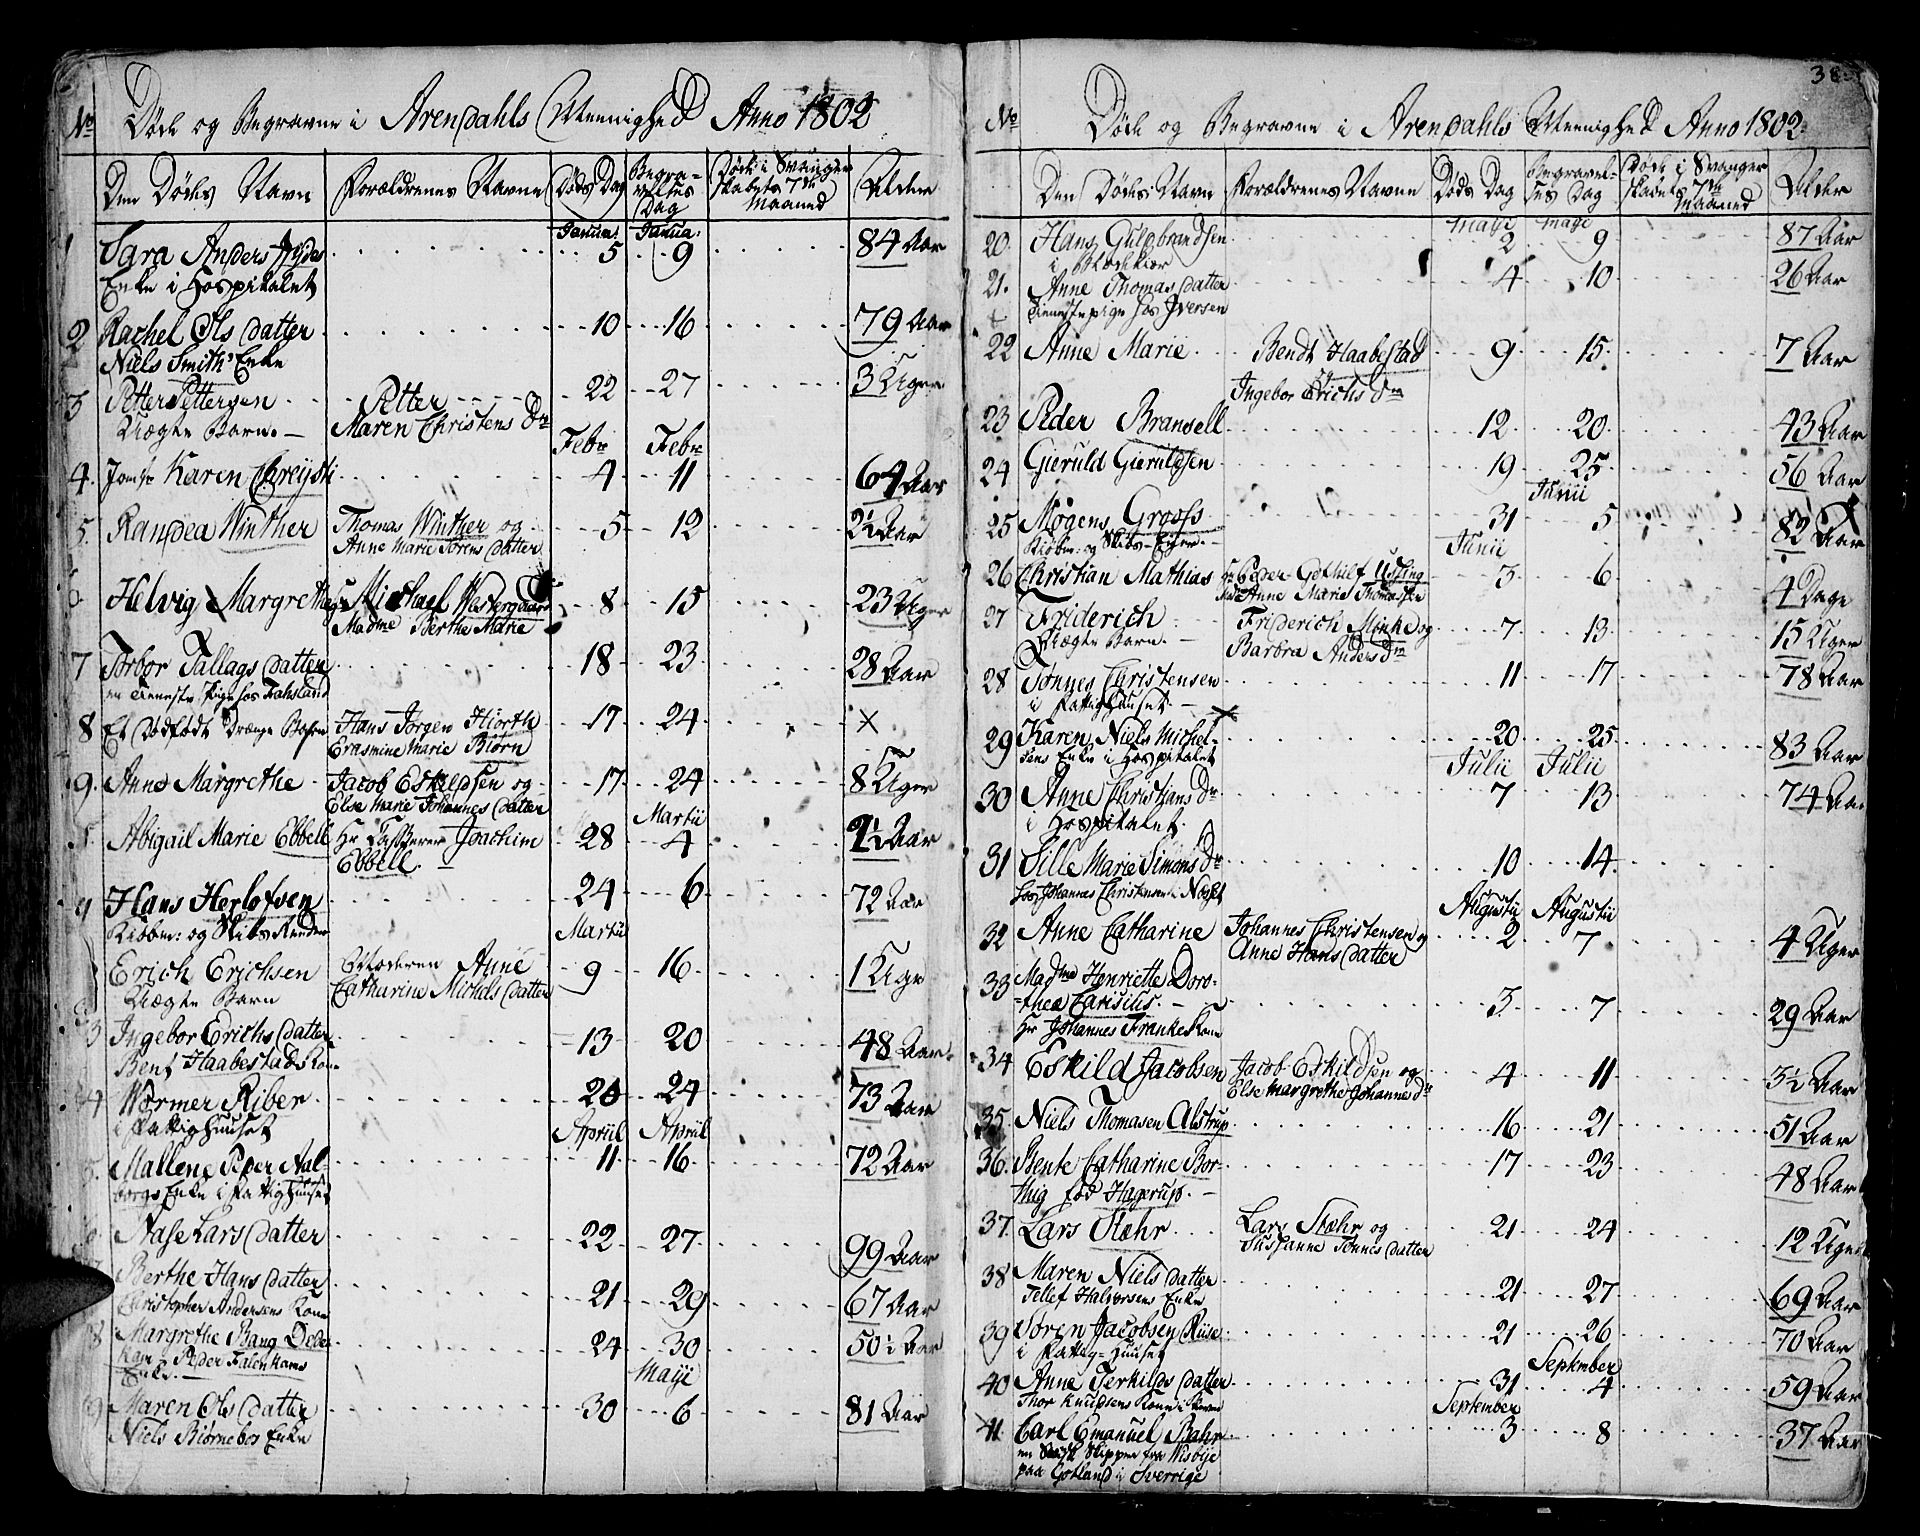 No Døde og Begravne i Arendahls Meenighed Anno 1802
Den Dødes Navn Forældrenes Navne Døds Dag Begravelses Dag Døde i Svangerskabets 7de Maaned Alder
Januar: Janua:
1 Sara Anders 5 9 84 Aar
Enke i Hospitalet
2 Rachel Ols Datter 10 16 79 Aar
Niels Smith's Enke
3 Petter Pettersen Petter 22 27 3 Uger
Uægte Barn. Maren Christens Dr
Febr Febr
4. Jomfr Karen 4 11 64 Aar
5. Randea Winther Thomas Winther og 5 12 2½ Aar
Anne Marie Sørens Datter
6 Helvig Margrethe Michael Westergaard 8 15 23 Uger
Madme Berthe Marie
7 Torbor Tallags Datter 18 23 28 Aar
en Tieneste Pige hos
8 Et Dødfødt Drenge Barn Hans Jørgen Hiorth 17 24 x
Erasmine Marie Biørn
9. Anne Margrethe Jacob Eskeldsen og 17 24 8 Uger
Else Marie Johannes Datter
Martii
Abigail Marie Ebbell Hr Joachim 28 4 Aar
Ebbell.
Hans Herlofsen 24 6 72 Aar
Kiøbm: og Skibs Reeder
Martii
Erich Erichsen Moderen Anne 9 16 1 Uge
Uægte Barn Catharine Michels Datter
3 Ingebor Erichs Datter 13 20 48 Aar.
Bent Haabestads Kone
4 Wermer Riber 20 24 73 Aar
i Fattighuuset
Apriil Apriil
5. Mallene Peder Aal- 11 16 72 Aar
borgs Enke i Fattighuuset
Aase Lars Datter 22 27 99 Aar
Berthe Hans Datter 21 29 67 Aar
Christopher Andersens Kone
8 Margrethe Bang 24 30 50½ Aar
Peder Falenkams
Enke.
Maji
9 Maren Ols Datter 30 6 81 Aar
Niels Biørnebos Enke
38
No Døde og Begravne i Arendahls Meenighed Anno 1802.
Den Dødes Navn Forældrenes Navne Døds Dag Begravelses Dag Døde i Svangerskabets 7de Maaned Alder
Maji Maji
20. Hans Gulbrandsen 2 9 87 Aar
i Blødekiær
21. Anne Thomas Datter 4 10 26 Aar
Tieneste pige hos Iversen
22 Anne Marie Bendt Haabestad 9 15. 7 Aar
og
Ingebor Erichs Dr
23 Peder Bransell 12 20 43 Aar
24 Gieruld Gieruldsen 19 25 56 Aar
Junii
25 Mogens Gross 31 5 82 Aar
Kiøbm: og Skibs-Eyer
Junii
26 Christian Mathias Hr Peder Gothilf Udsing 3 6 4 Dage
Anne Marie Thomassen
27 Friderich Friderich Minke og 7 13 15 Uger
Uægte Barn. Barbra Anders Dr
28 Tønnes Christensen 11 17 78 Aar
i Fattighuuset.
29 Karen, Niels Michel- 20 25 83 Aar
sens Enke i Hospitalet
Julii Julii
30 Anne Christians Dr 7 13 74 Aar
i Hospitalet.
31 Sille Marie Simons Dr 10 14
hos Johannes Christensen
Augustii Augustii
32 Anne Catharine Johannes Christensen og 2 7 4 Uger
Anne Hans Datter
33 Madme Henriette Doro- 3 7 29 Aar
thea Carisius.
Hr Johannes Frankes Kone
34 Eskild Jacobsen Jacob Eskildsen og 4 11 3½ Aar
Else Margrethe Johannes Dr
35. Niels Thomasen Alstrup 16 21 51 Aar
36. Bente Catharine Bor- 17 23 48 Aar
thig fød Hagerup.
37. Lars Stæhr Lars Stæhr og 21 24 12 Uger
Sussanne Tønnes Datter
38 Maren Niels Datter 21 27 69 Aar
Tellef Halvorsens Enke
39 Søren Jacobsen Riise 21 26 70 Aar
i Fattig-Huuset
September
40 Anne Terkilds Datter 31 4 59 Aar
Thor Knudsens Kone
September
41 Carl Emanuel Bahr 3 8 37 Aar
en Svensk Skipper fra Wisbye
paa Gotland i Sverrige